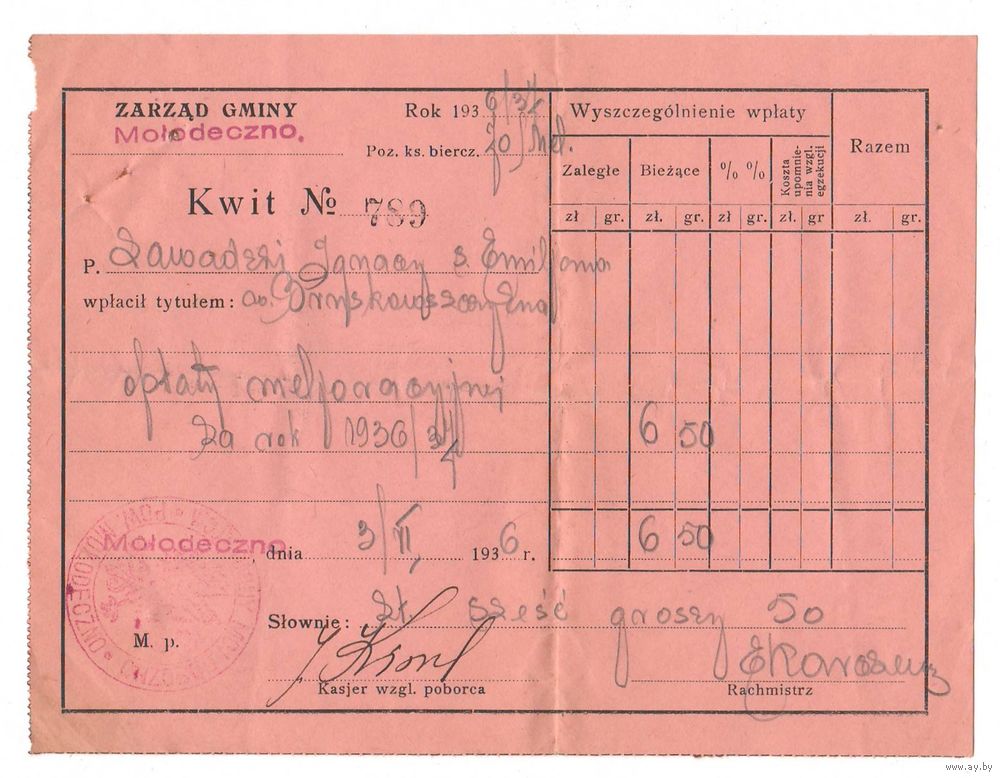 ZARZĄD GMINY
Mołodeczno.
Rok 1936/37
Poz. ks. biercz. 70/Mel.
Kwit № 789
P. Zawadzki Ignacy s. Emiljana
wpłacił tytułem:
opłaty meljoracyjnej
za rok 1936/37
Wyszczególnienie wpłaty
Razem
Zaległe Bieżące % % Koszta upomnie-nia wzgl. egzekucji
zł gr. zł. gr. zł gr zł. gr zł. gr.
6 50
6 50
Mołodeczno, dnia 3/VI, 1936 r.
MOŁODECZNO
M. p.
Słownie: zł. sześć groszy 50
Kasjer wzgl. poborca
Rachmistrz
www.ay.by